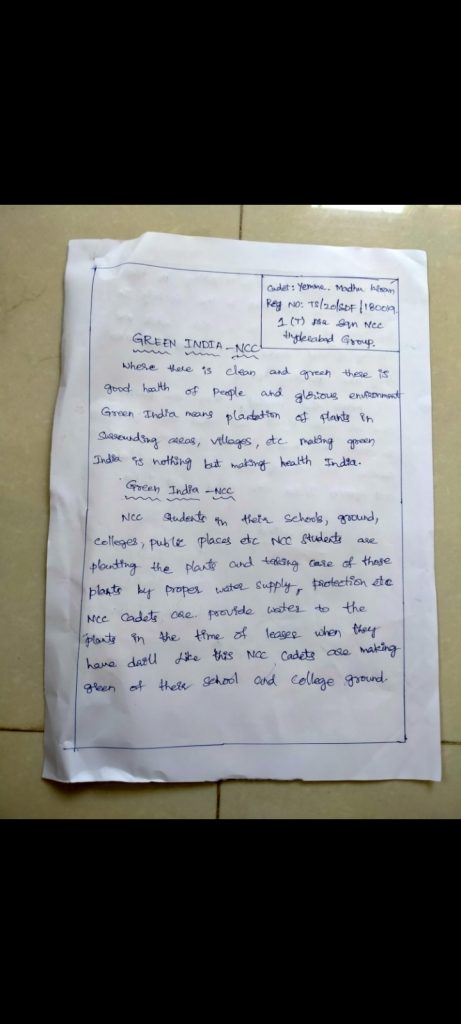 Cadet: Yemme. Madhu kiran
Reg NO: TS/20/SDF/180019.
1 (T) Sqn NCC
Hyderabad Group.
GREEN INDIA - NCC
Where there is clean and green there is
good health of people and glorious environment
Green India means plantation of plants in
Surrounding areas, villages, etc making green
India is nothing but making health India.
Green India - NCC
NCC Students in their Schools, ground,
colleges, public places etc NCC Students are
planting the plants and taking care of those
plants by proper water supply, protection etc
NCC Cadets are. provide water to the
plants in the time of leaser when they
have drill like this NCC Cadets are making
green of their school and college ground.